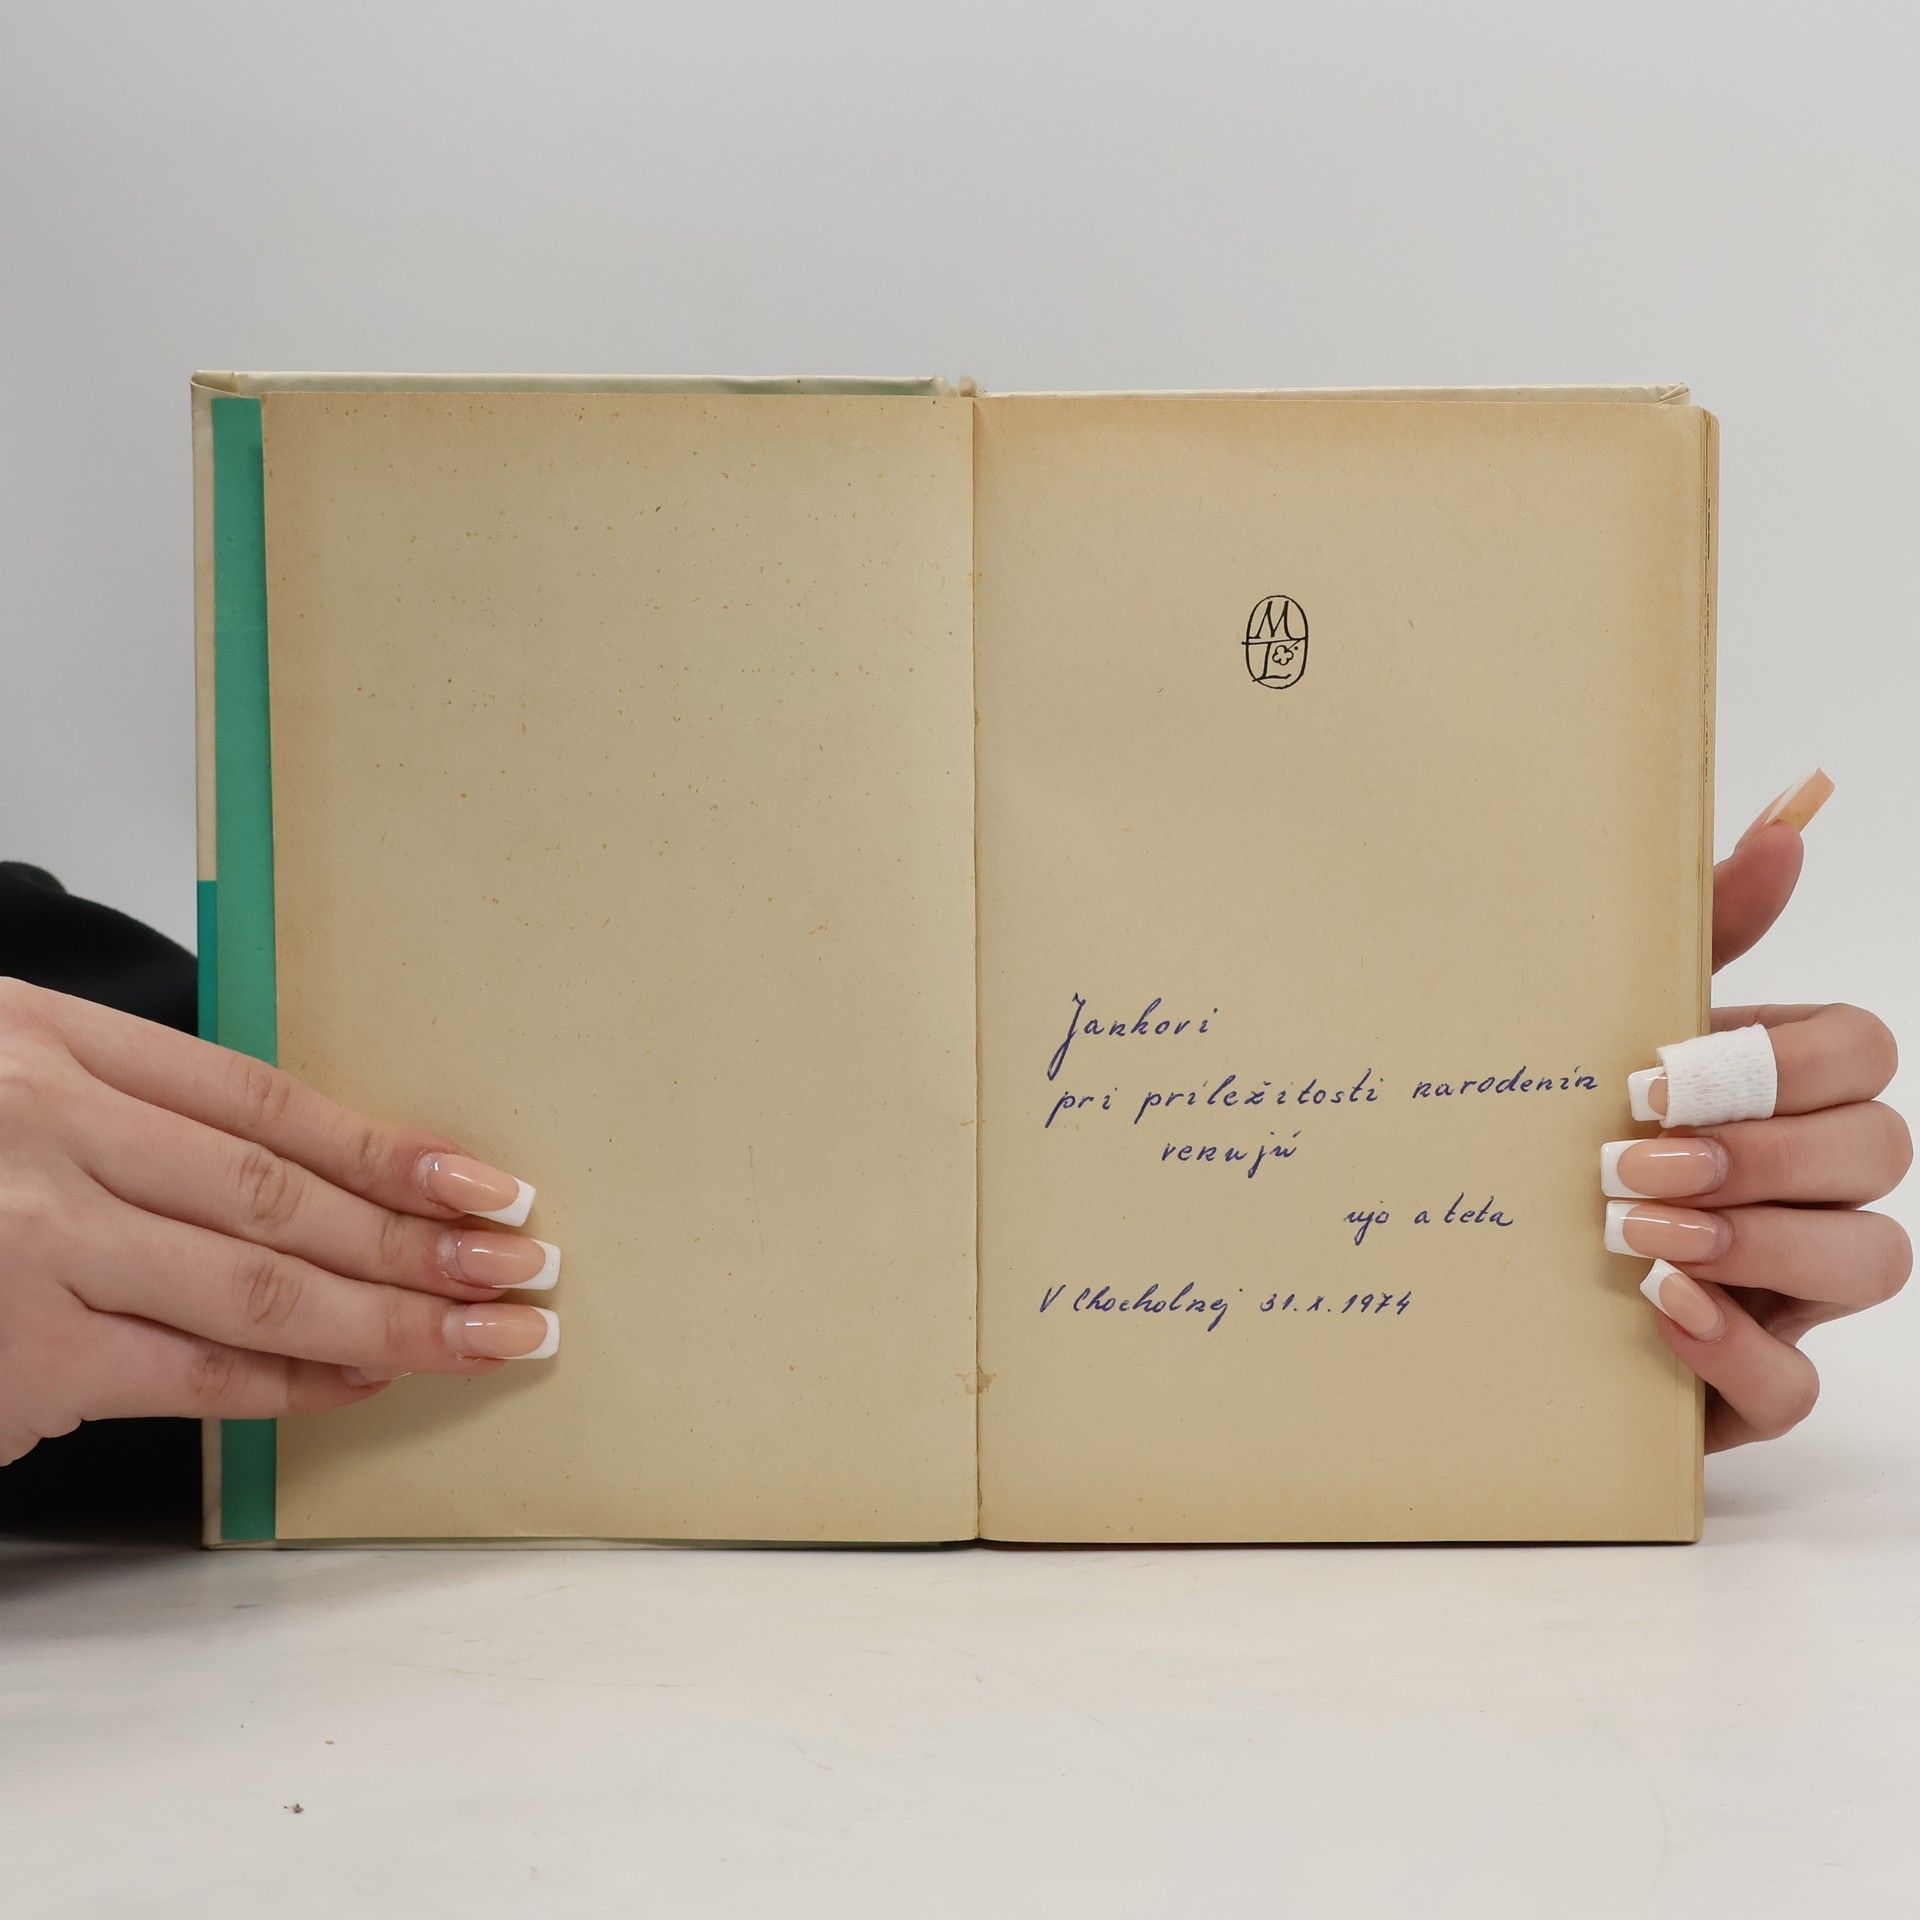 ML
Jankovi
pri príležitosti narodenín
venujú
ujo a teta
V Chocholnej 31.X.1974